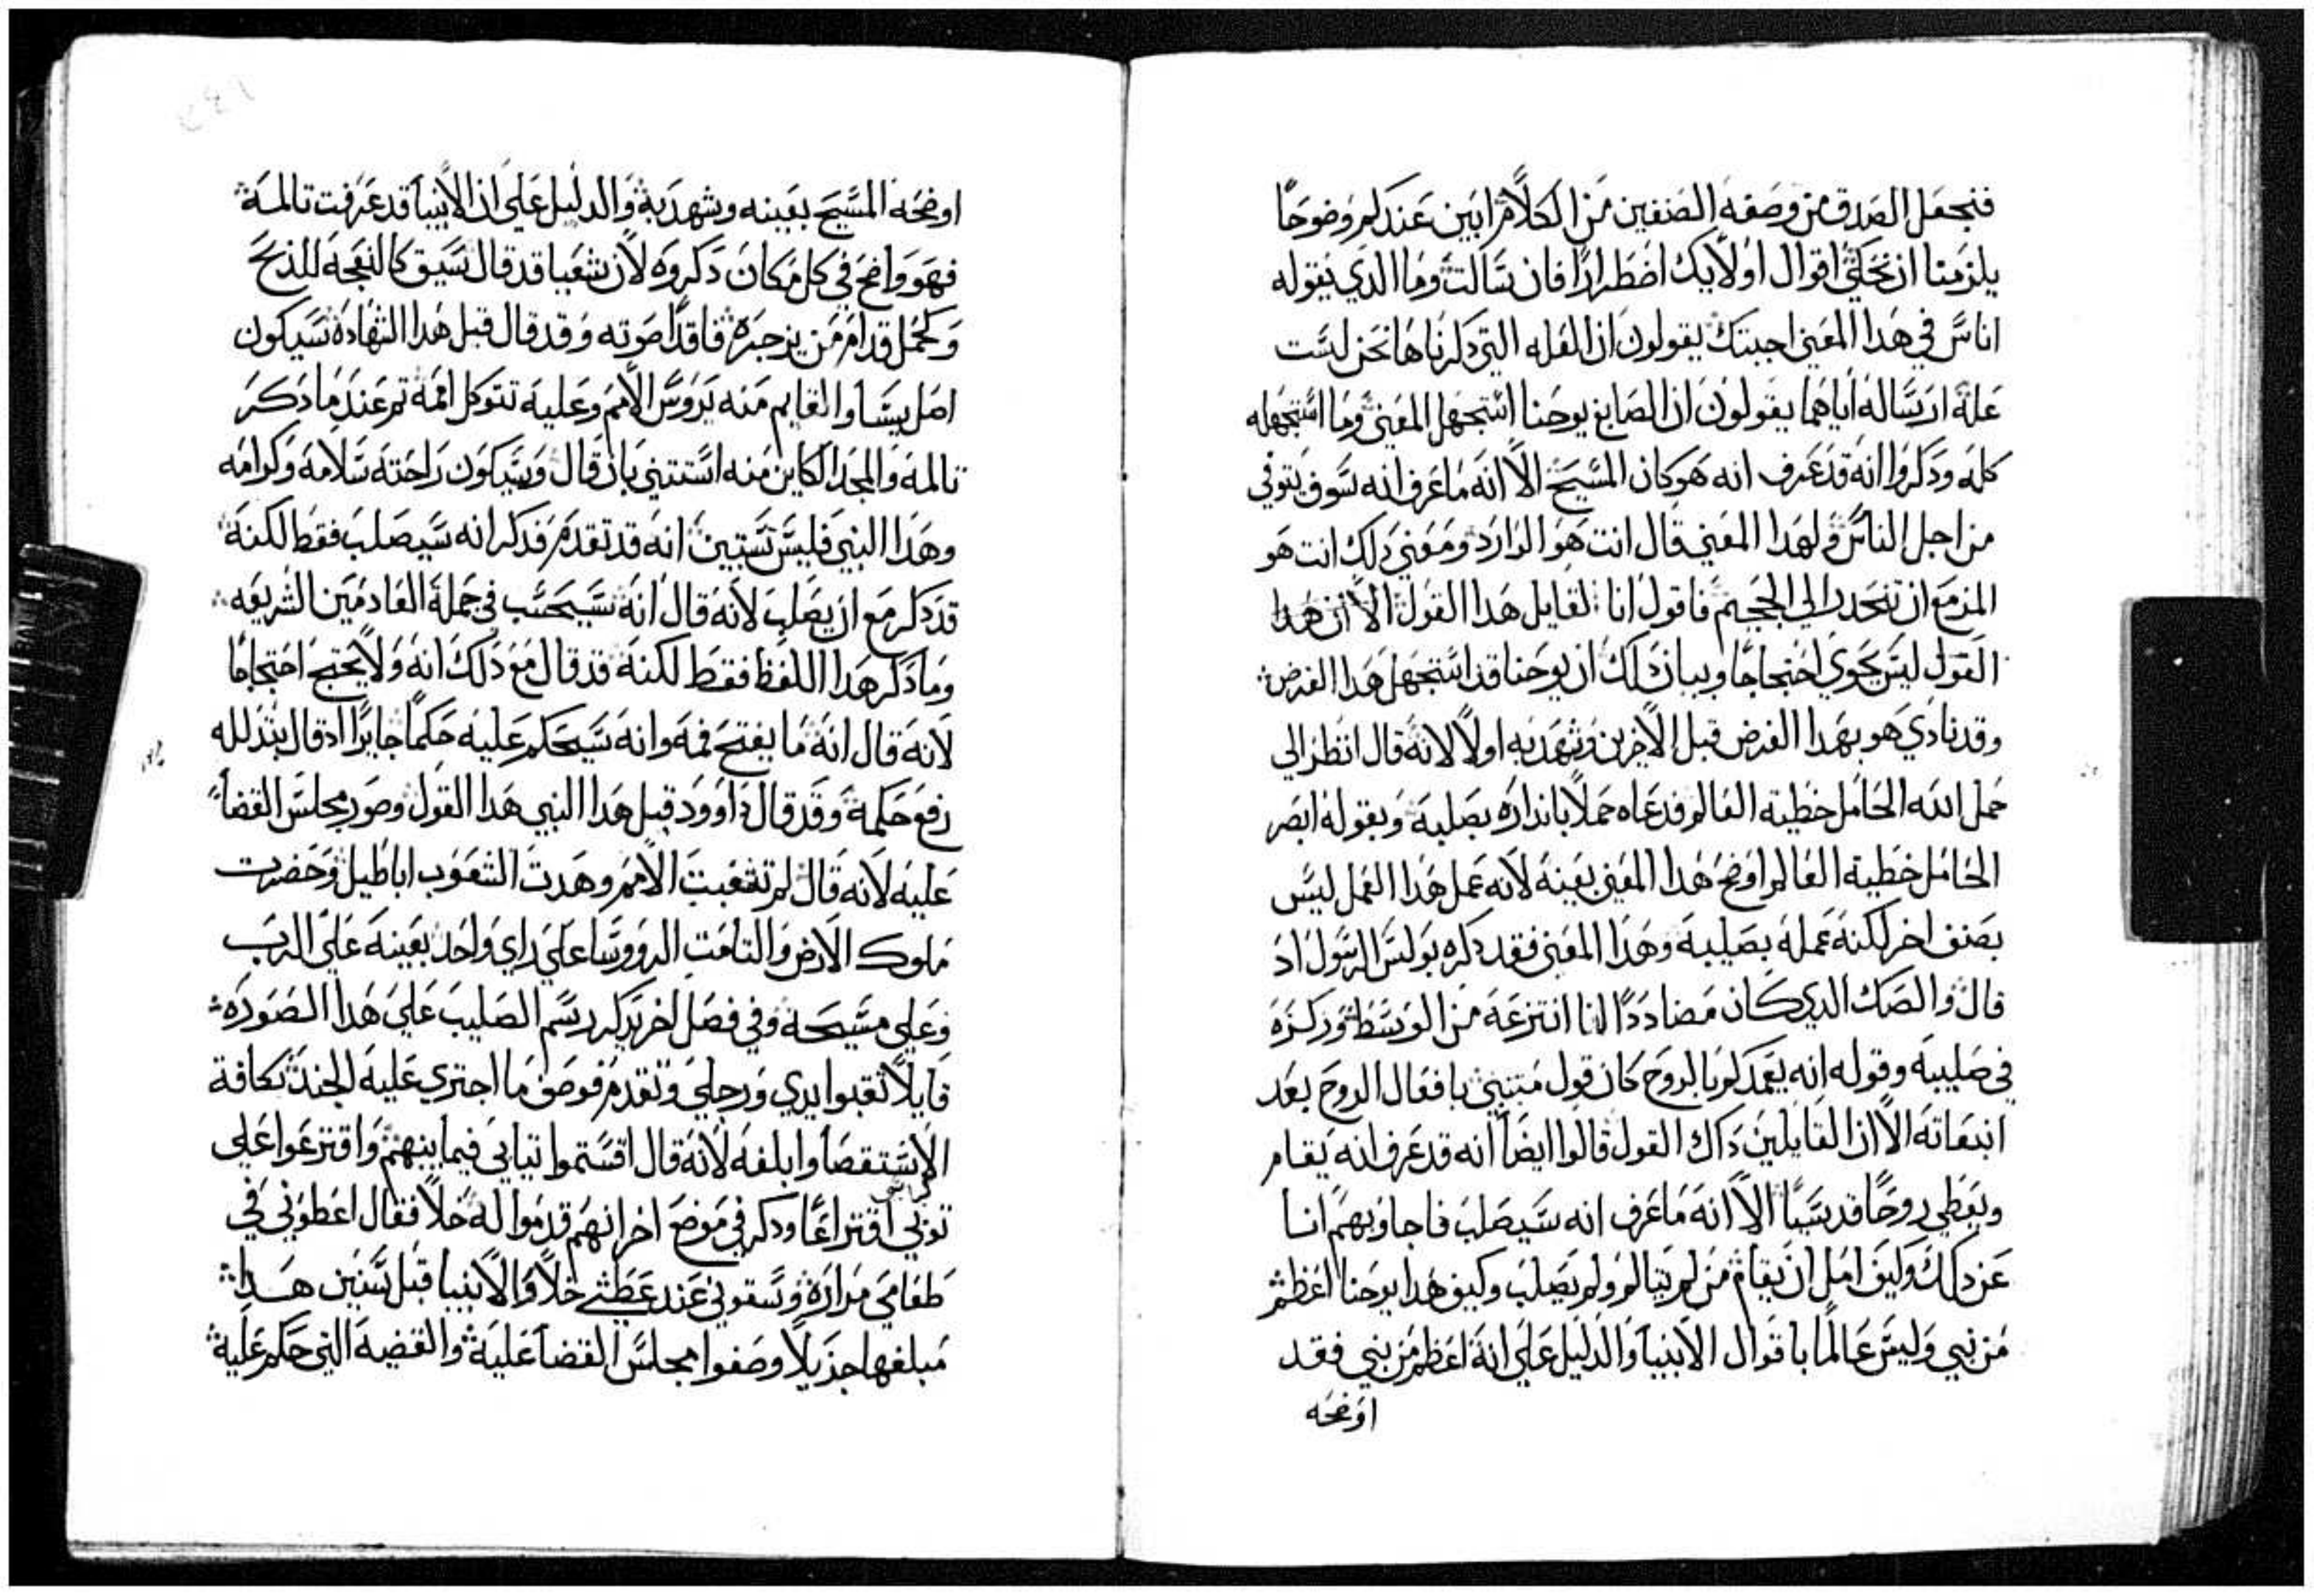 فنجعل الصدق من وصفه الصنفين من الكلام ابين عندكم وضوحًا
يلزمنا ان نحكي اقوال اولايك اضطرارًا فان سالت وما الذي يقوله
اناس في هذا المعني اجبتك يقولون ان العله التي ذكرناها نحن ليست
علة ارساله اياهما يقولون ان الصابغ يوحنا استجهل المعني وما استجهله
كله وذكروا انه قد عرف انه هو كان المسيح الا انه ما عرف انه سوف يتوفي
من اجل الناس ولهذا المعني قال انت هو الوارد ومعني ذلك انت هو
المزمع ان تنحدر الي الجحيم فاقول انا لقايل هذا القول الا ان هذا
القول ليس يحوي احتجاجًا وبيان ذلك ان يوحنا قد استجهل هذا الغرض
وقد نادي هو بهذا الغرض قبل الاخرين وشهد به اولًا لانه قال انظر الي
حمل الله الحامل خطية العالم فدعاه حملًا بانذاره بصلبه وبقوله ابصر
الحامل خطية العالم اوضح هذا المعني بعينه لانه عمل هذا العمل ليس
بصنف اخر لكنه عمله بصليبه وهذا المعني فقد ذكره بولس الرسول اذ
قال والصك الذي كان مضاددًا لنا انتزعه من الوسط وركزه
في صليبه وقوله انه يعمدكم بالروح كان قول متنبي بافعال الروح بعد
انبعاثه الا ان القايلين ذاك القول قالوا ايضًا انه قد عرف انه يقام
ويعطي روحًا قدسيًا الا انه ما عرف انه سيصلب فاجاوبهم انا
عن ذلك وكيف امل ان يقام من لم يتالم ولم يصلب وكيف هذا يوحنا اعظم
من نبي وليس عالمًا باقوال الانبيا والدليل علي انه اعظم من نبي فقد
اوضحه
اوضحه المسيح بعينه وشهد به والدليل علي ان الانبيا قد عرفت تالمه
فهو واضح في كل مكان ذكروه لان شعيا قد قال سيق كالنعجة للذبح
وكحمل قدام من يزجره فاقدًا صوته وقد قال قبل هذا الشهادة سيكون
اصل يسا والقايم منه يروس الامم وعليه تتوكل امة ثم عند ما ذكر
تالمه والمجد الكاين منه استتني بان قال وسيكون راحته سلامه وكرامه
وهذا النبي فليس تستبين انه قد تقدم فذكر انه سيصلب فقط لكنه
قد ذكر مع ان يصلب لانه قال انه سيحسب في جملة العادمين الشريعه
وما ذكر هذا اللفظ فقط لكنه قد قال مع ذلك انه ولا يحتج احتجاجًا
لانه قال انه ما يفتح فمه وانه سيحكم عليه حكمًا جايرًا اذ قال بتذلله
رفع حكمه وقد قال داوود قبل هذا النبي هذا القول وصور مجلس القضا
عليه لانه قال لم تشغبت الامم وهدت الشعوب اباطيل وحضرت
ملوك الارض والتامت الروورسا علي راي واحد بعينه علي الرب
وعلي مسيحه وفي فصل اخر يذكر رسم الصليب علي هذا الصوره
قايلًا ثقبوا يدي ورجلي وتقدم فوصف ما اجتري عليه الجند بكافة
الاستقصا وابلغه لانه قال اقسموا ثيابي فيما بينهم واقترعوا علي
ثوبي اقتراعًا وذكر في موضع اخر انهم قدموا له خلًا فقال اعطوني في
طعامي مراره وسقوني عند عطشي خلًا والانبيا قبل سنين هذا
مبلغها جزيلًا وصفوا مجلس القضا عليه والقضيه التي حكم عليه